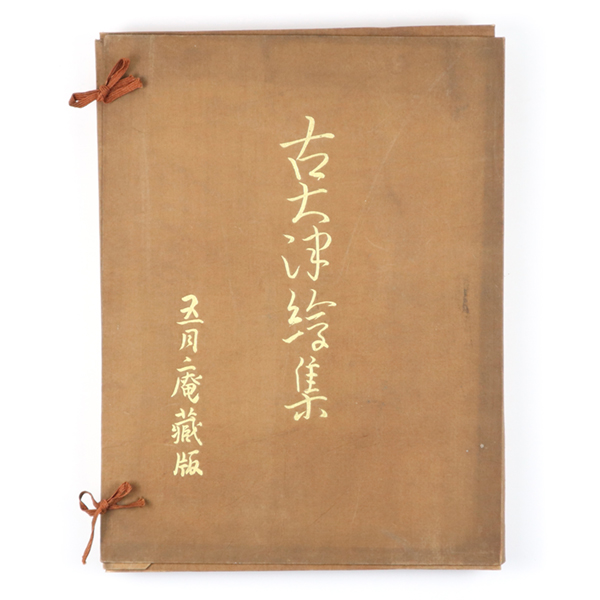 古大津繪集
五月庵藏版